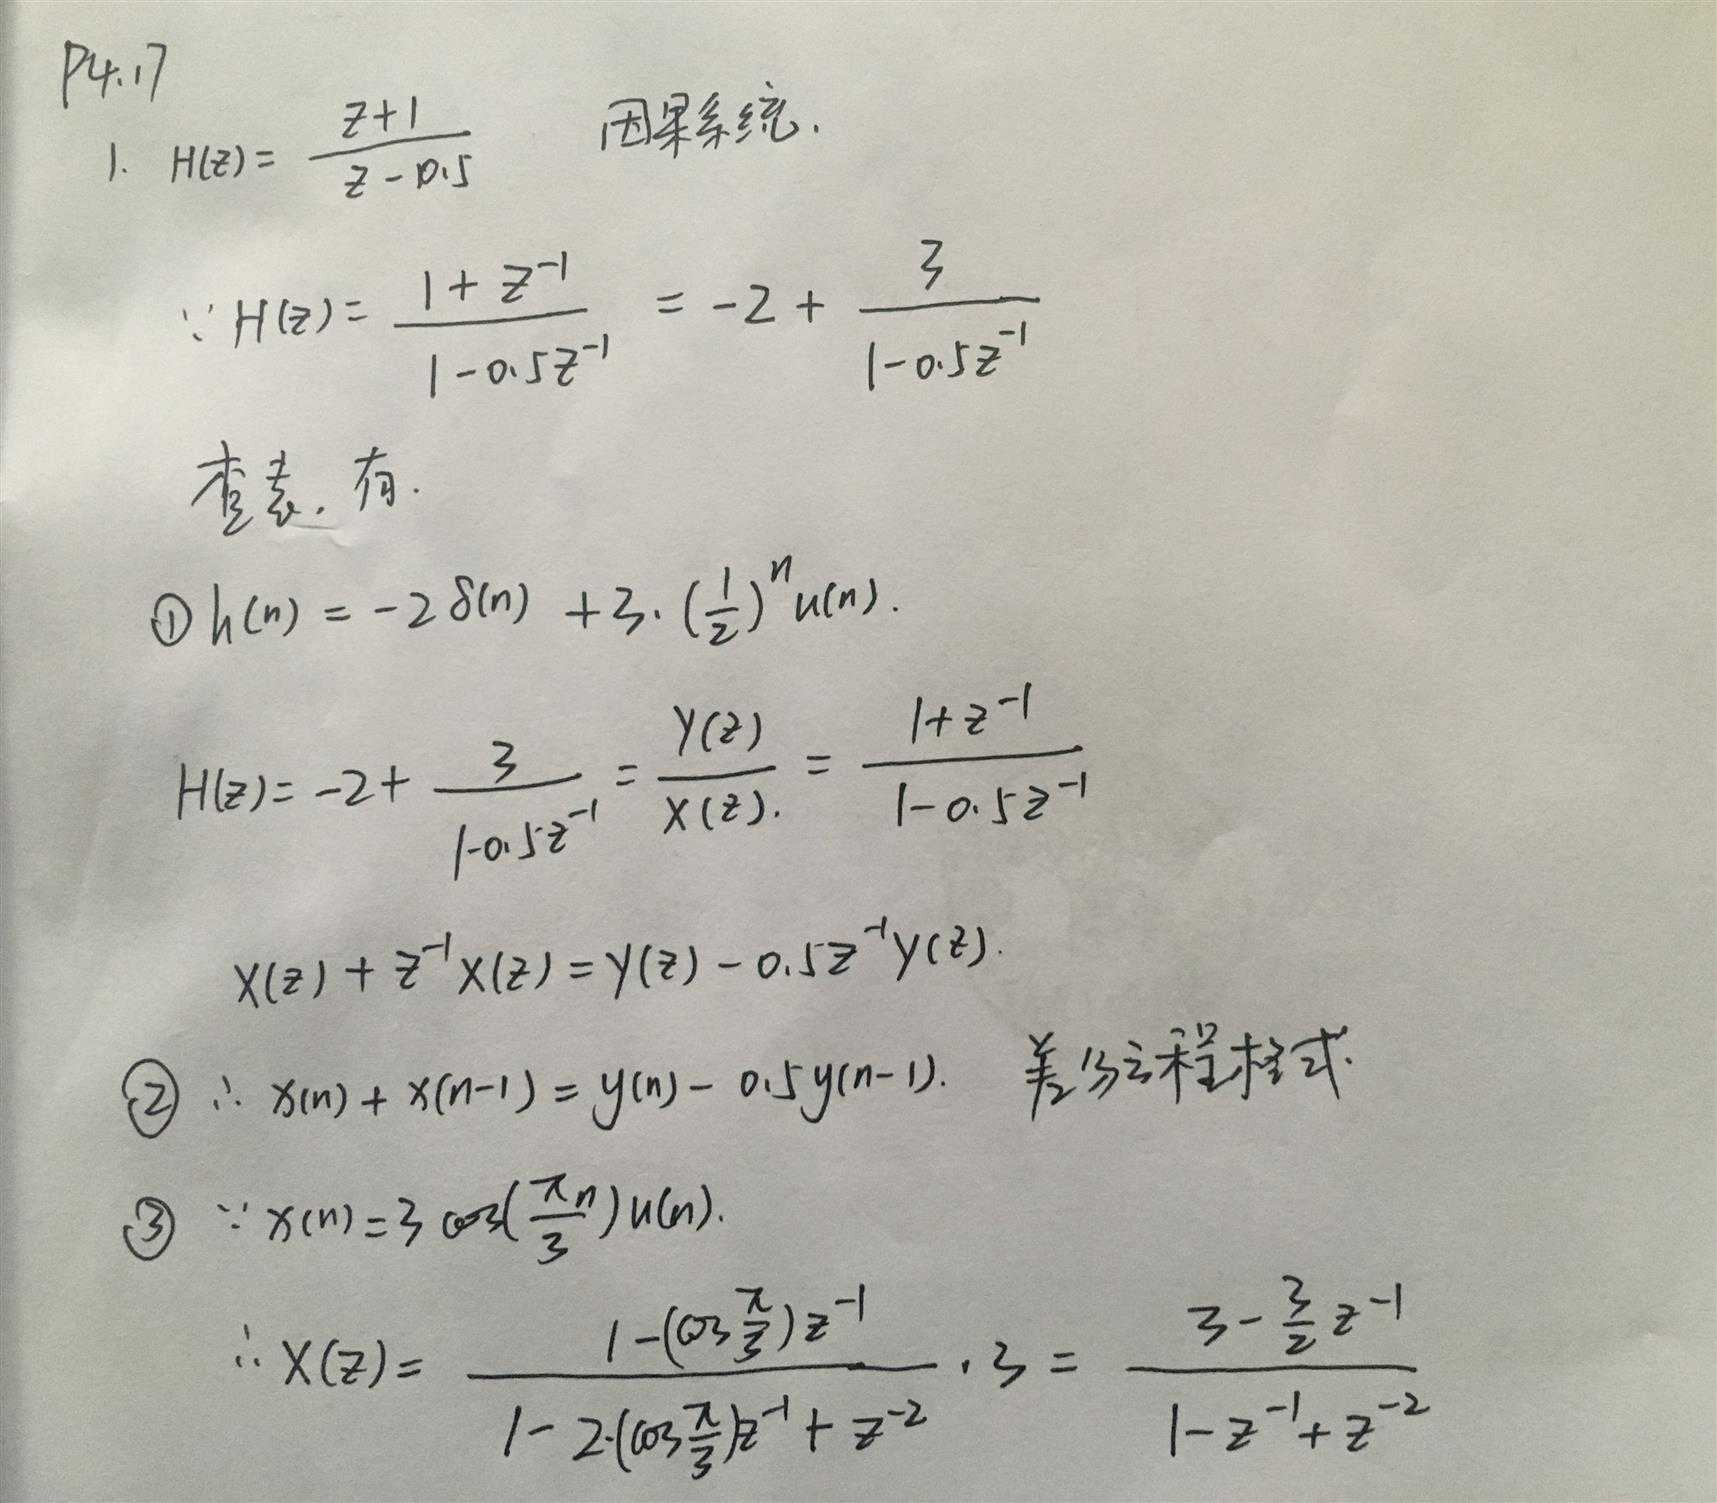 P4.17
1. H(z) = (z+1)/(z-0.5) 因果系统.
∵ H(z) = (1+z⁻¹)/(1-0.5z⁻¹) = -2 + 3/(1-0.5z⁻¹)
查表.有.
① h(n) = -2δ(n) + 3·(1/2)ⁿ u(n).
H(z) = -2 + 3/(1-0.5z⁻¹) = Y(z)/X(z). = (1+z⁻¹)/(1-0.5z⁻¹)
X(z) + z⁻¹X(z) = Y(z) - 0.5z⁻¹Y(z).
② ∴ x(n) + x(n-1) = y(n) - 0.5y(n-1). 差分方程格式.
③ ∵ x(n) = 3 cos(πn/3)u(n).
∴ X(z) = (1-(cos π/3)z⁻¹)/(1-2·(cos π/3)z⁻¹+z⁻²) · 3 = (3 - 3/2 z⁻¹)/(1-z⁻¹+z⁻²)